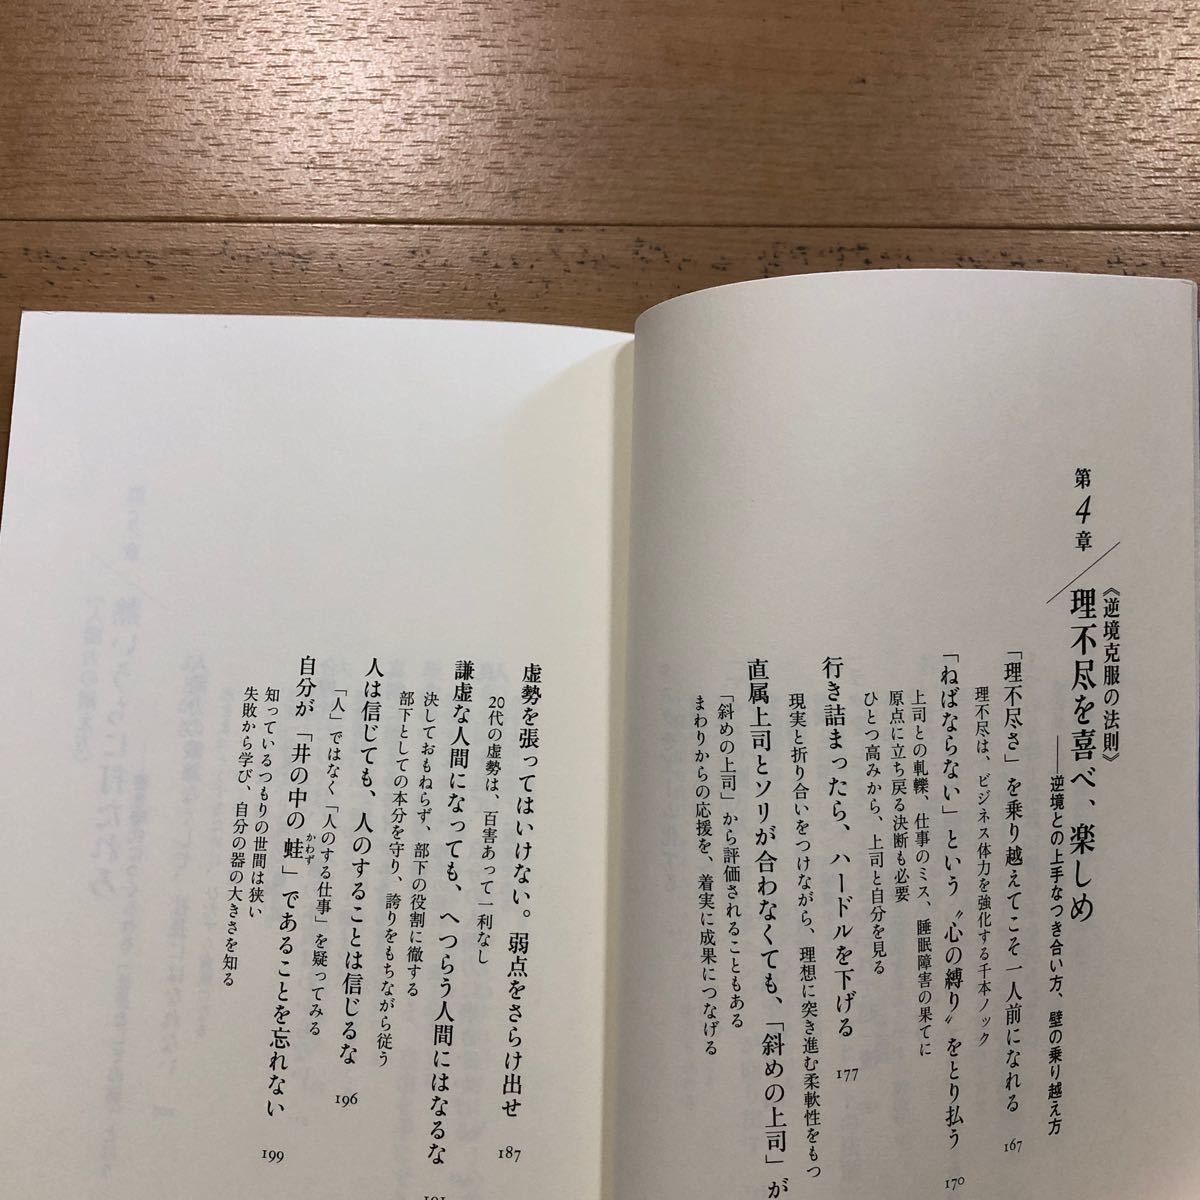 第4章
《逆境克服の法則》
理不尽を喜べ、楽しめ
──逆境との上手なつき合い方、壁の乗り越え方
「理不尽さ」を乗り越えてこそ一人前になれる 167
理不尽は、ビジネス体力を強化する千本ノック
「ねばならない」という〝心の縛り〟をとり払う 170
上司との軋轢、仕事のミス、睡眠障害の果てに
原点に立ち戻る決断も必要
ひとつ高みから、上司と自分を見る
行き詰まったら、ハードルを下げる 177
現実と折り合いをつけながら、理想に突き進む柔軟性をもつ
直属上司とソリが合わなくても、「斜めの上司」が
「斜めの上司」から評価されることもある
まわりからの応援を、着実に成果につなげる
虚勢を張ってはいけない。弱点をさらけ出せ 187
20代の虚勢は、百害あって一利なし
謙虚な人間になっても、へつらう人間にはなるな 191
決しておもねらず、部下の役割に徹する
部下としての本分を守り、誇りをもちながら従う
人は信じても、人のすることは信じるな 196
「人」ではなく「人のする仕事」を疑ってみる
自分が「井の中の蛙」であることを忘れない 199
かわず
知っているつもりの世間は狭い
失敗から学び、自分の器の大きさを知る